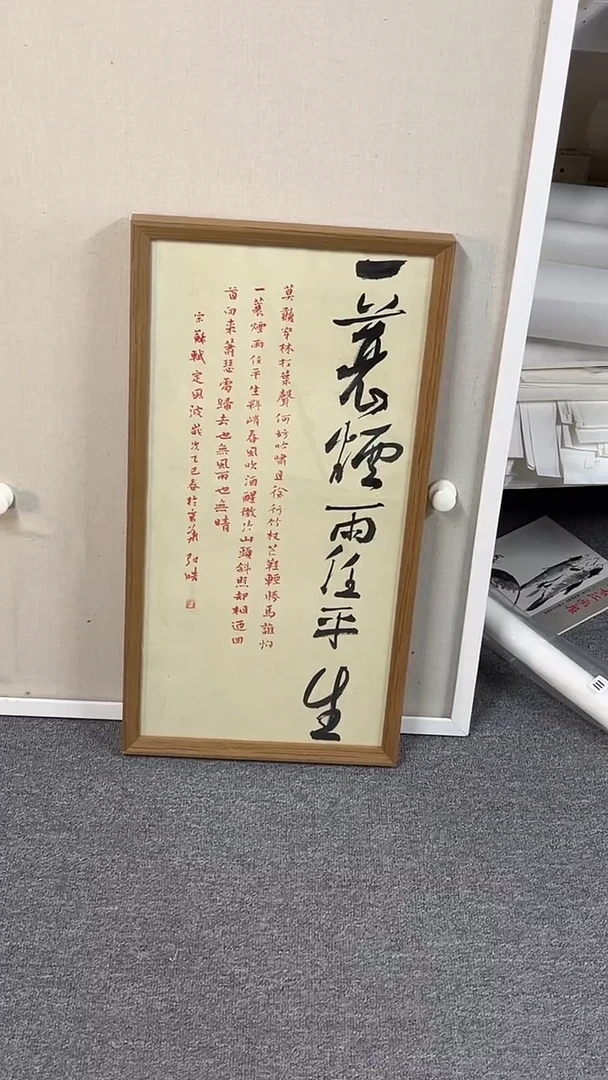 一蓑煙雨任平生
莫聽穿林打葉聲何妨吟嘯且徐行竹杖芒鞋輕勝馬誰怕
一蓑煙雨任平生料峭春風吹酒醒微冷山頭斜照却相迎回
首向來蕭瑟處歸去也無風雨也無晴
宋蘇軾定風波歲次乙巳春於